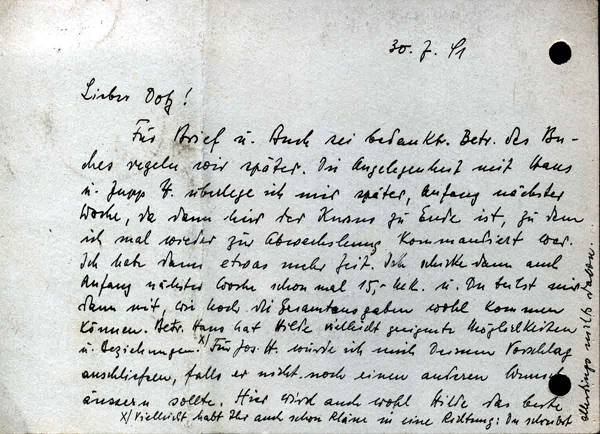 30. 7. 41
Lieber Dotz!
Für Brief u. Buch sei bedankt. Betr. des Bu-
ches regeln wir später. Die Angelegenheit mit Hans
u. Jupp H. überlege ich mir später, Anfang nächster
Woche, da dann hier der Kursus zu Ende ist, zu dem
ich mal wieder zur Abwechslung kommandiert war.
Ich habe dann etwas mehr Zeit. Ich schicke dann auch
Anfang nächster Woche schon mal 15,- u. Du teilst mir
dann mit, wie hoch die Gesamtausgaben wohl kommen
können. Betr. Hans hat Hilde vielleicht geeignete Möglichkeiten
u. Beziehungen. x) Für Jos. H. würde ich mich Deinem Vorschlag
anschließen, falls er nicht noch einen anderen Wunsch
äussern sollte. Hier wird auch wohl Hilde das beste
x) Vielleicht habt Ihr auch schon Pläne in eine Richtung: Du schreibst
allerdings nichts davon.